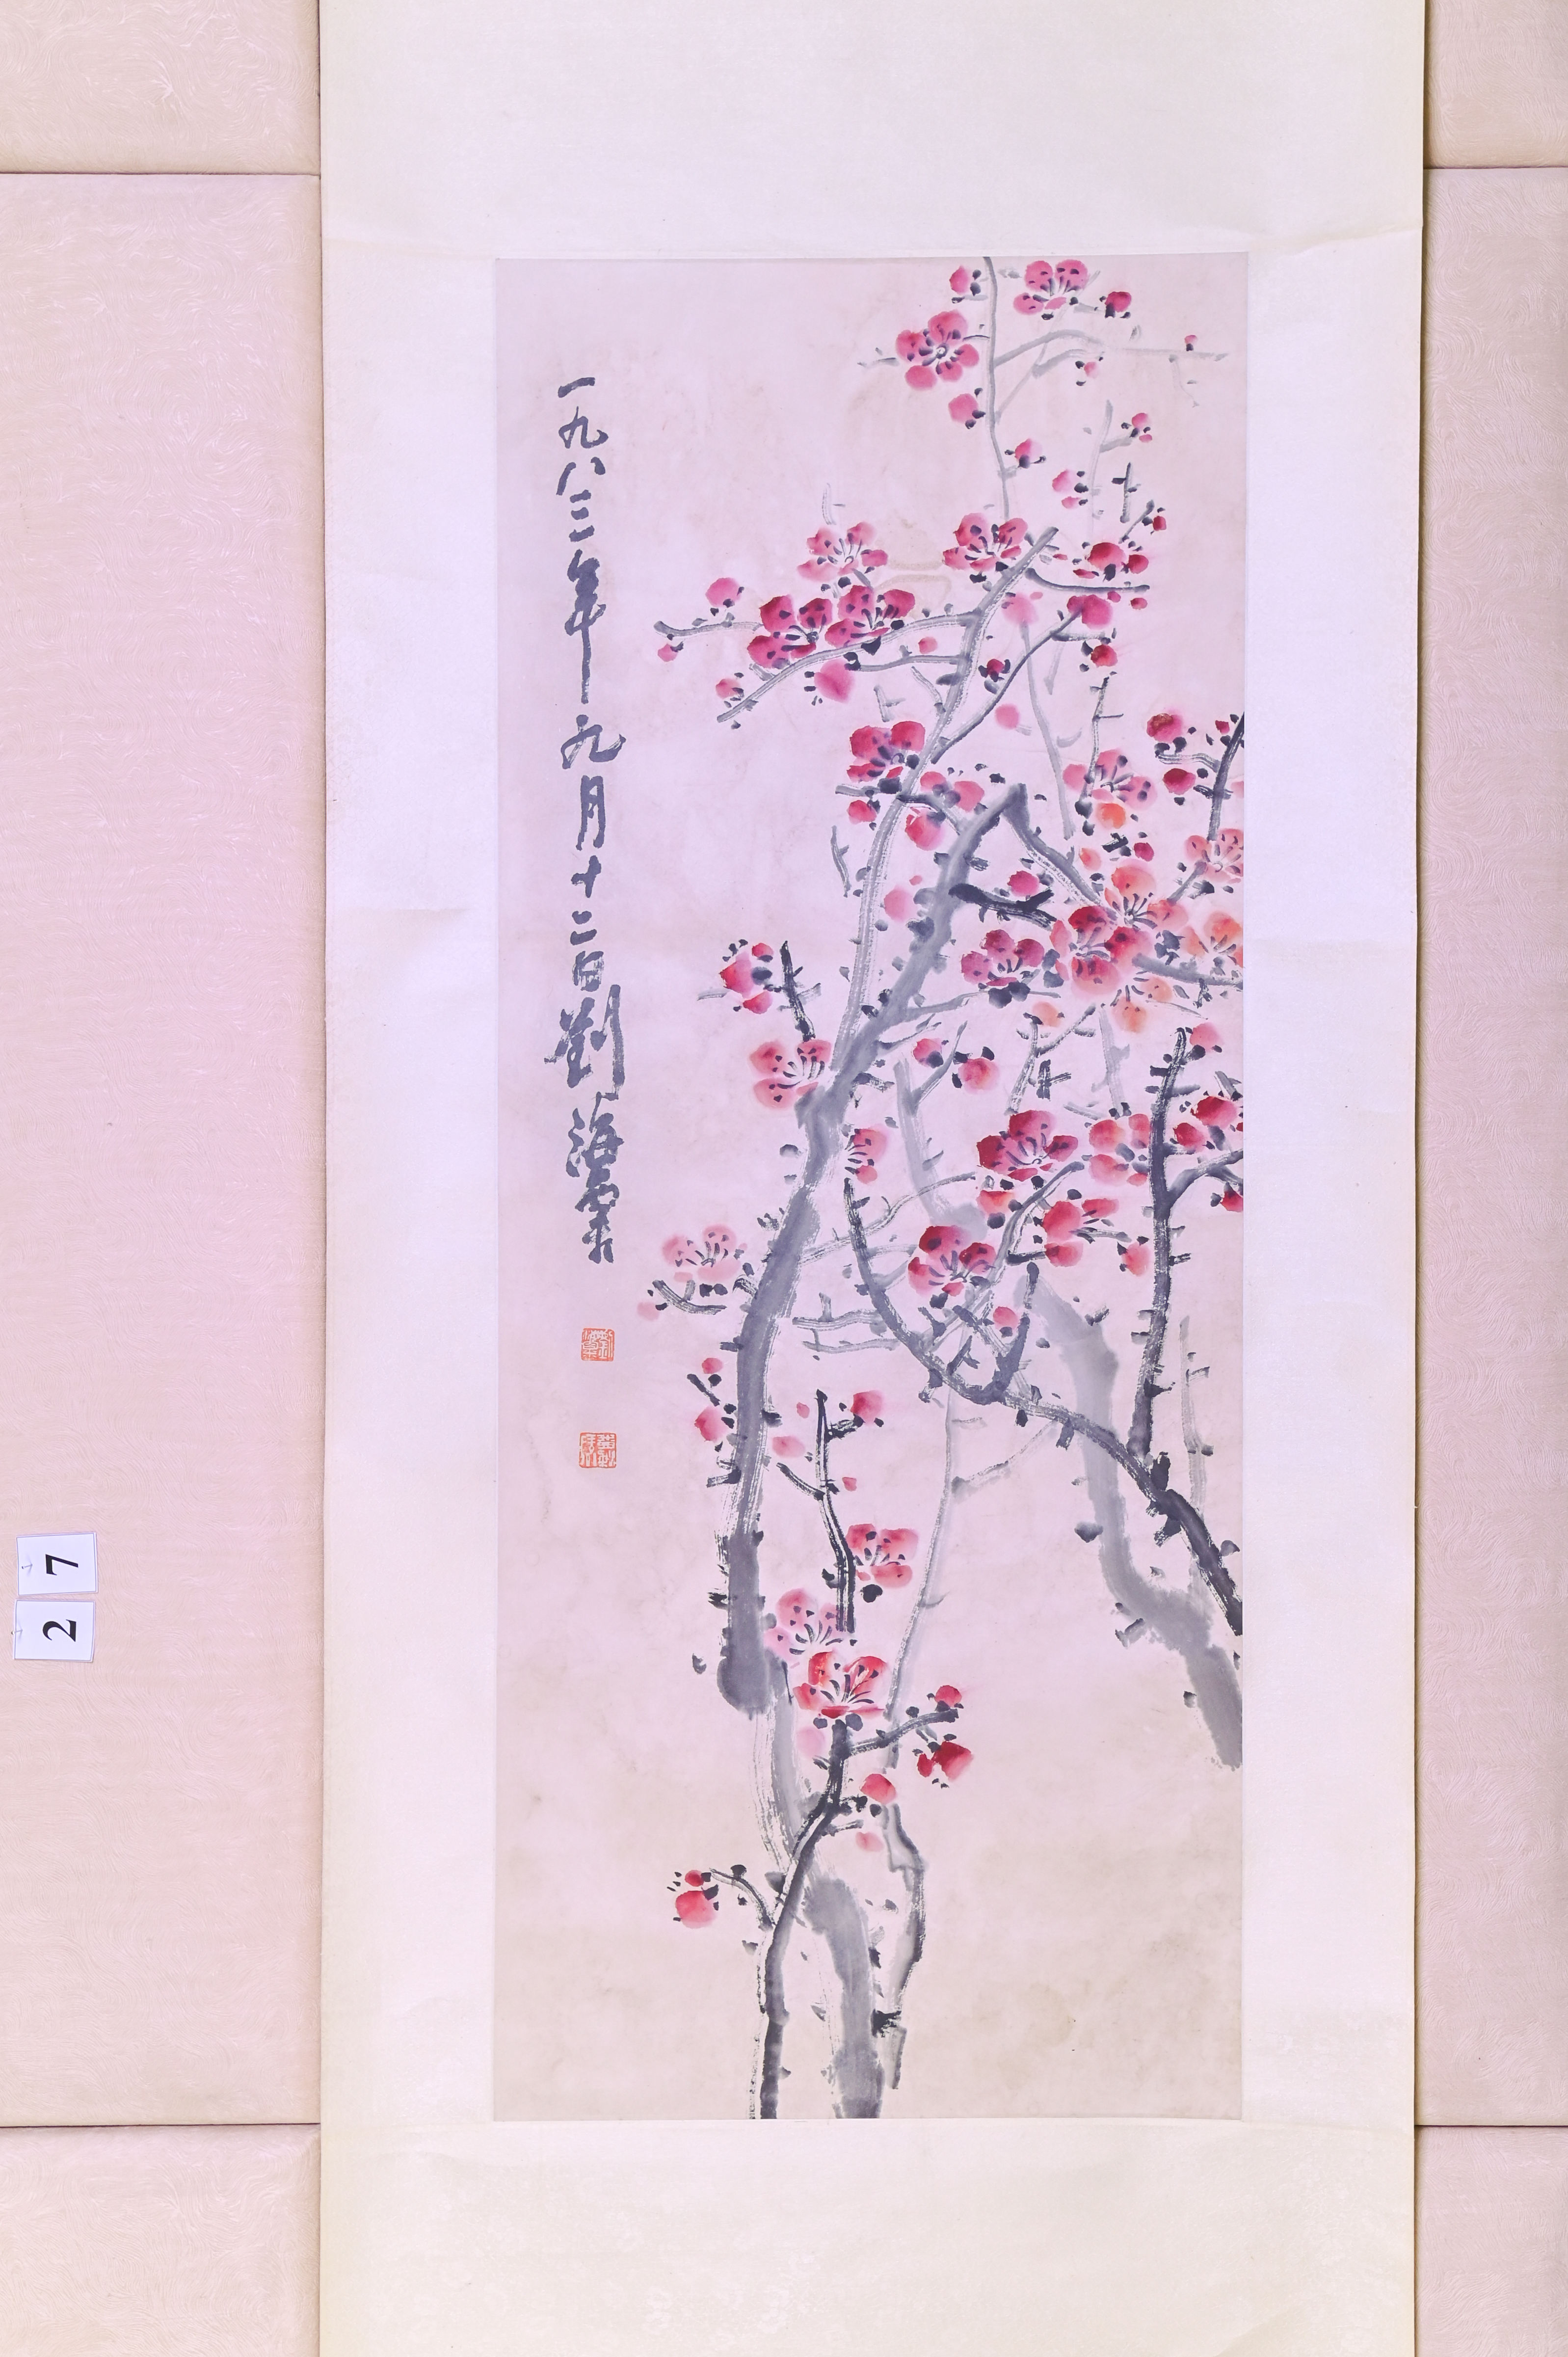 一九八三年九月十二日劉海粟
劉海粟
27